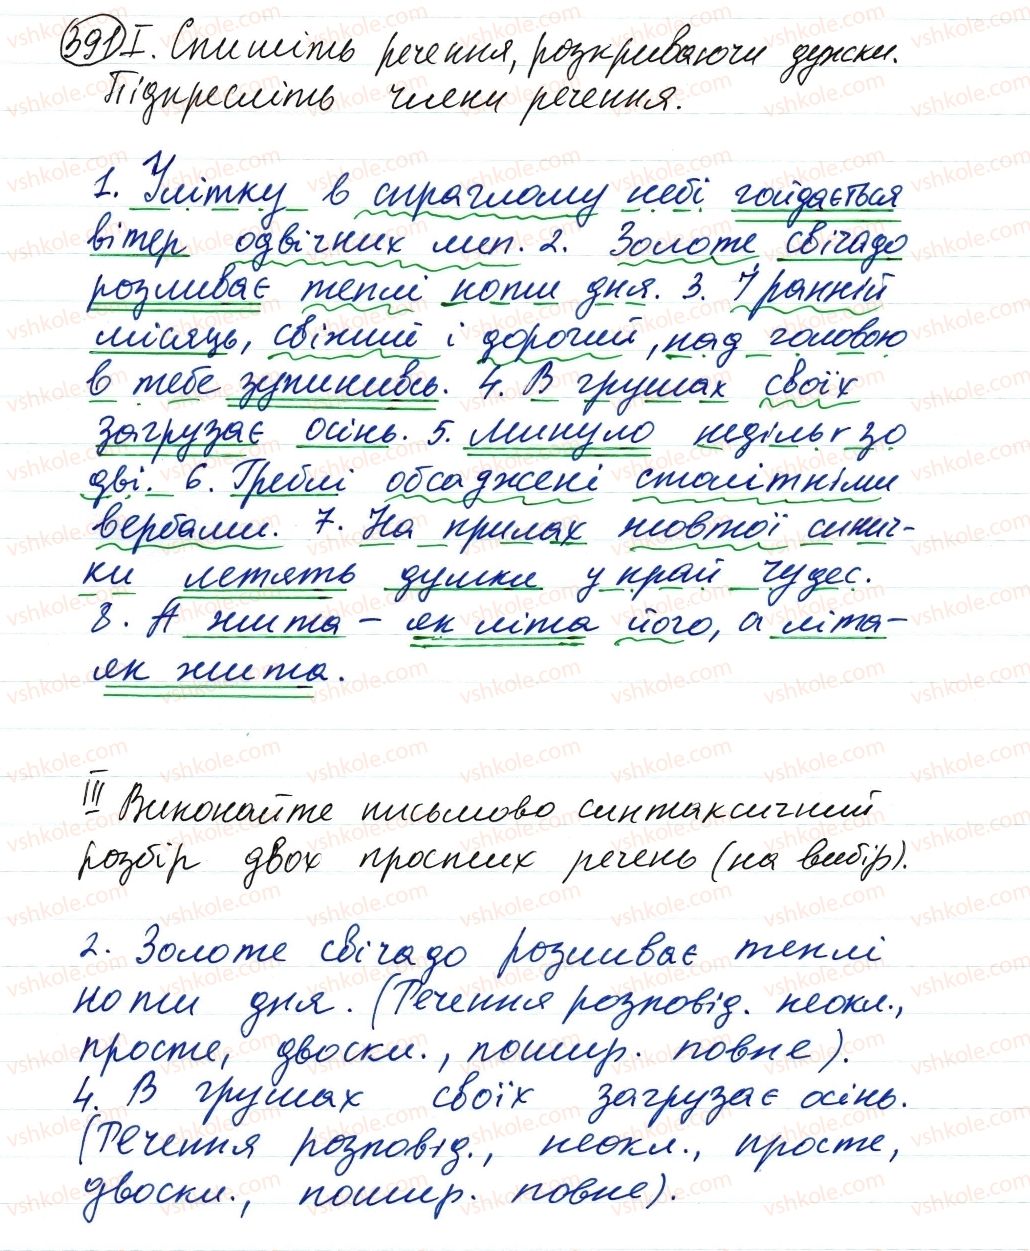 391 I. Спишіть речення, розкриваючи дужки.
Підкресліть члени речення.
1. Улітку в спраглому небі гойдається
вітер одвічних лип. 2. Золоте свічадо
розливає теплі ноти дня. 3. У ранній
місяць, свіжий і дорогий, над головою
в тебе зупинивсь. 4. В грушах своїх
загрузає осінь. 5. Минуло неділь зо
дві. 6. Греблі обсаджені столітніми
вербами. 7. На крилах жовтої синич-
ки летять думки у край чудес.
8. А жита – як літа його, а літа –
як жита.
III Виконайте письмово синтаксичний
розбір двох простих речень (на вибір).
2. Золоте свічадо розливає теплі
ноти дня. (Речення розповід. неокл.,
просте, двоскл., пошир. повне).
4. В грушах своїх загрузає осінь.
(Речення розповід., неокл., просте,
двоскл., пошир. повне).